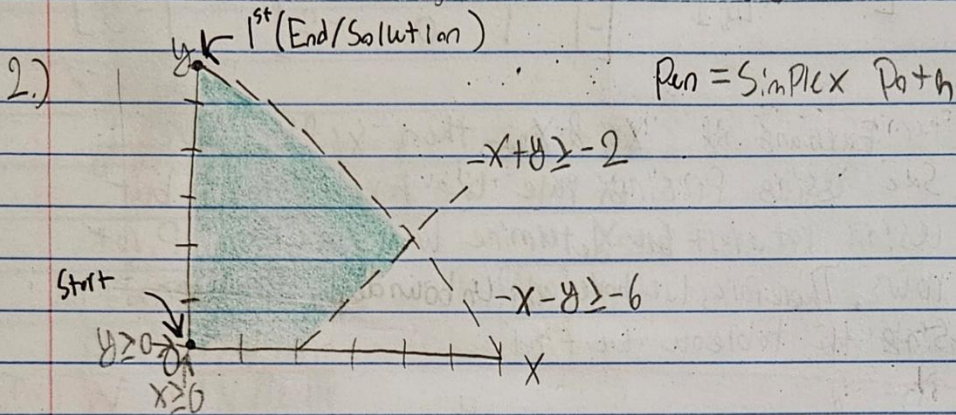 2.)
y
1st (End/Solution)
Pen = Simplex Path
-x+y≥-2
Start
-x-y≥-6
y≥0
0
x≥0
x